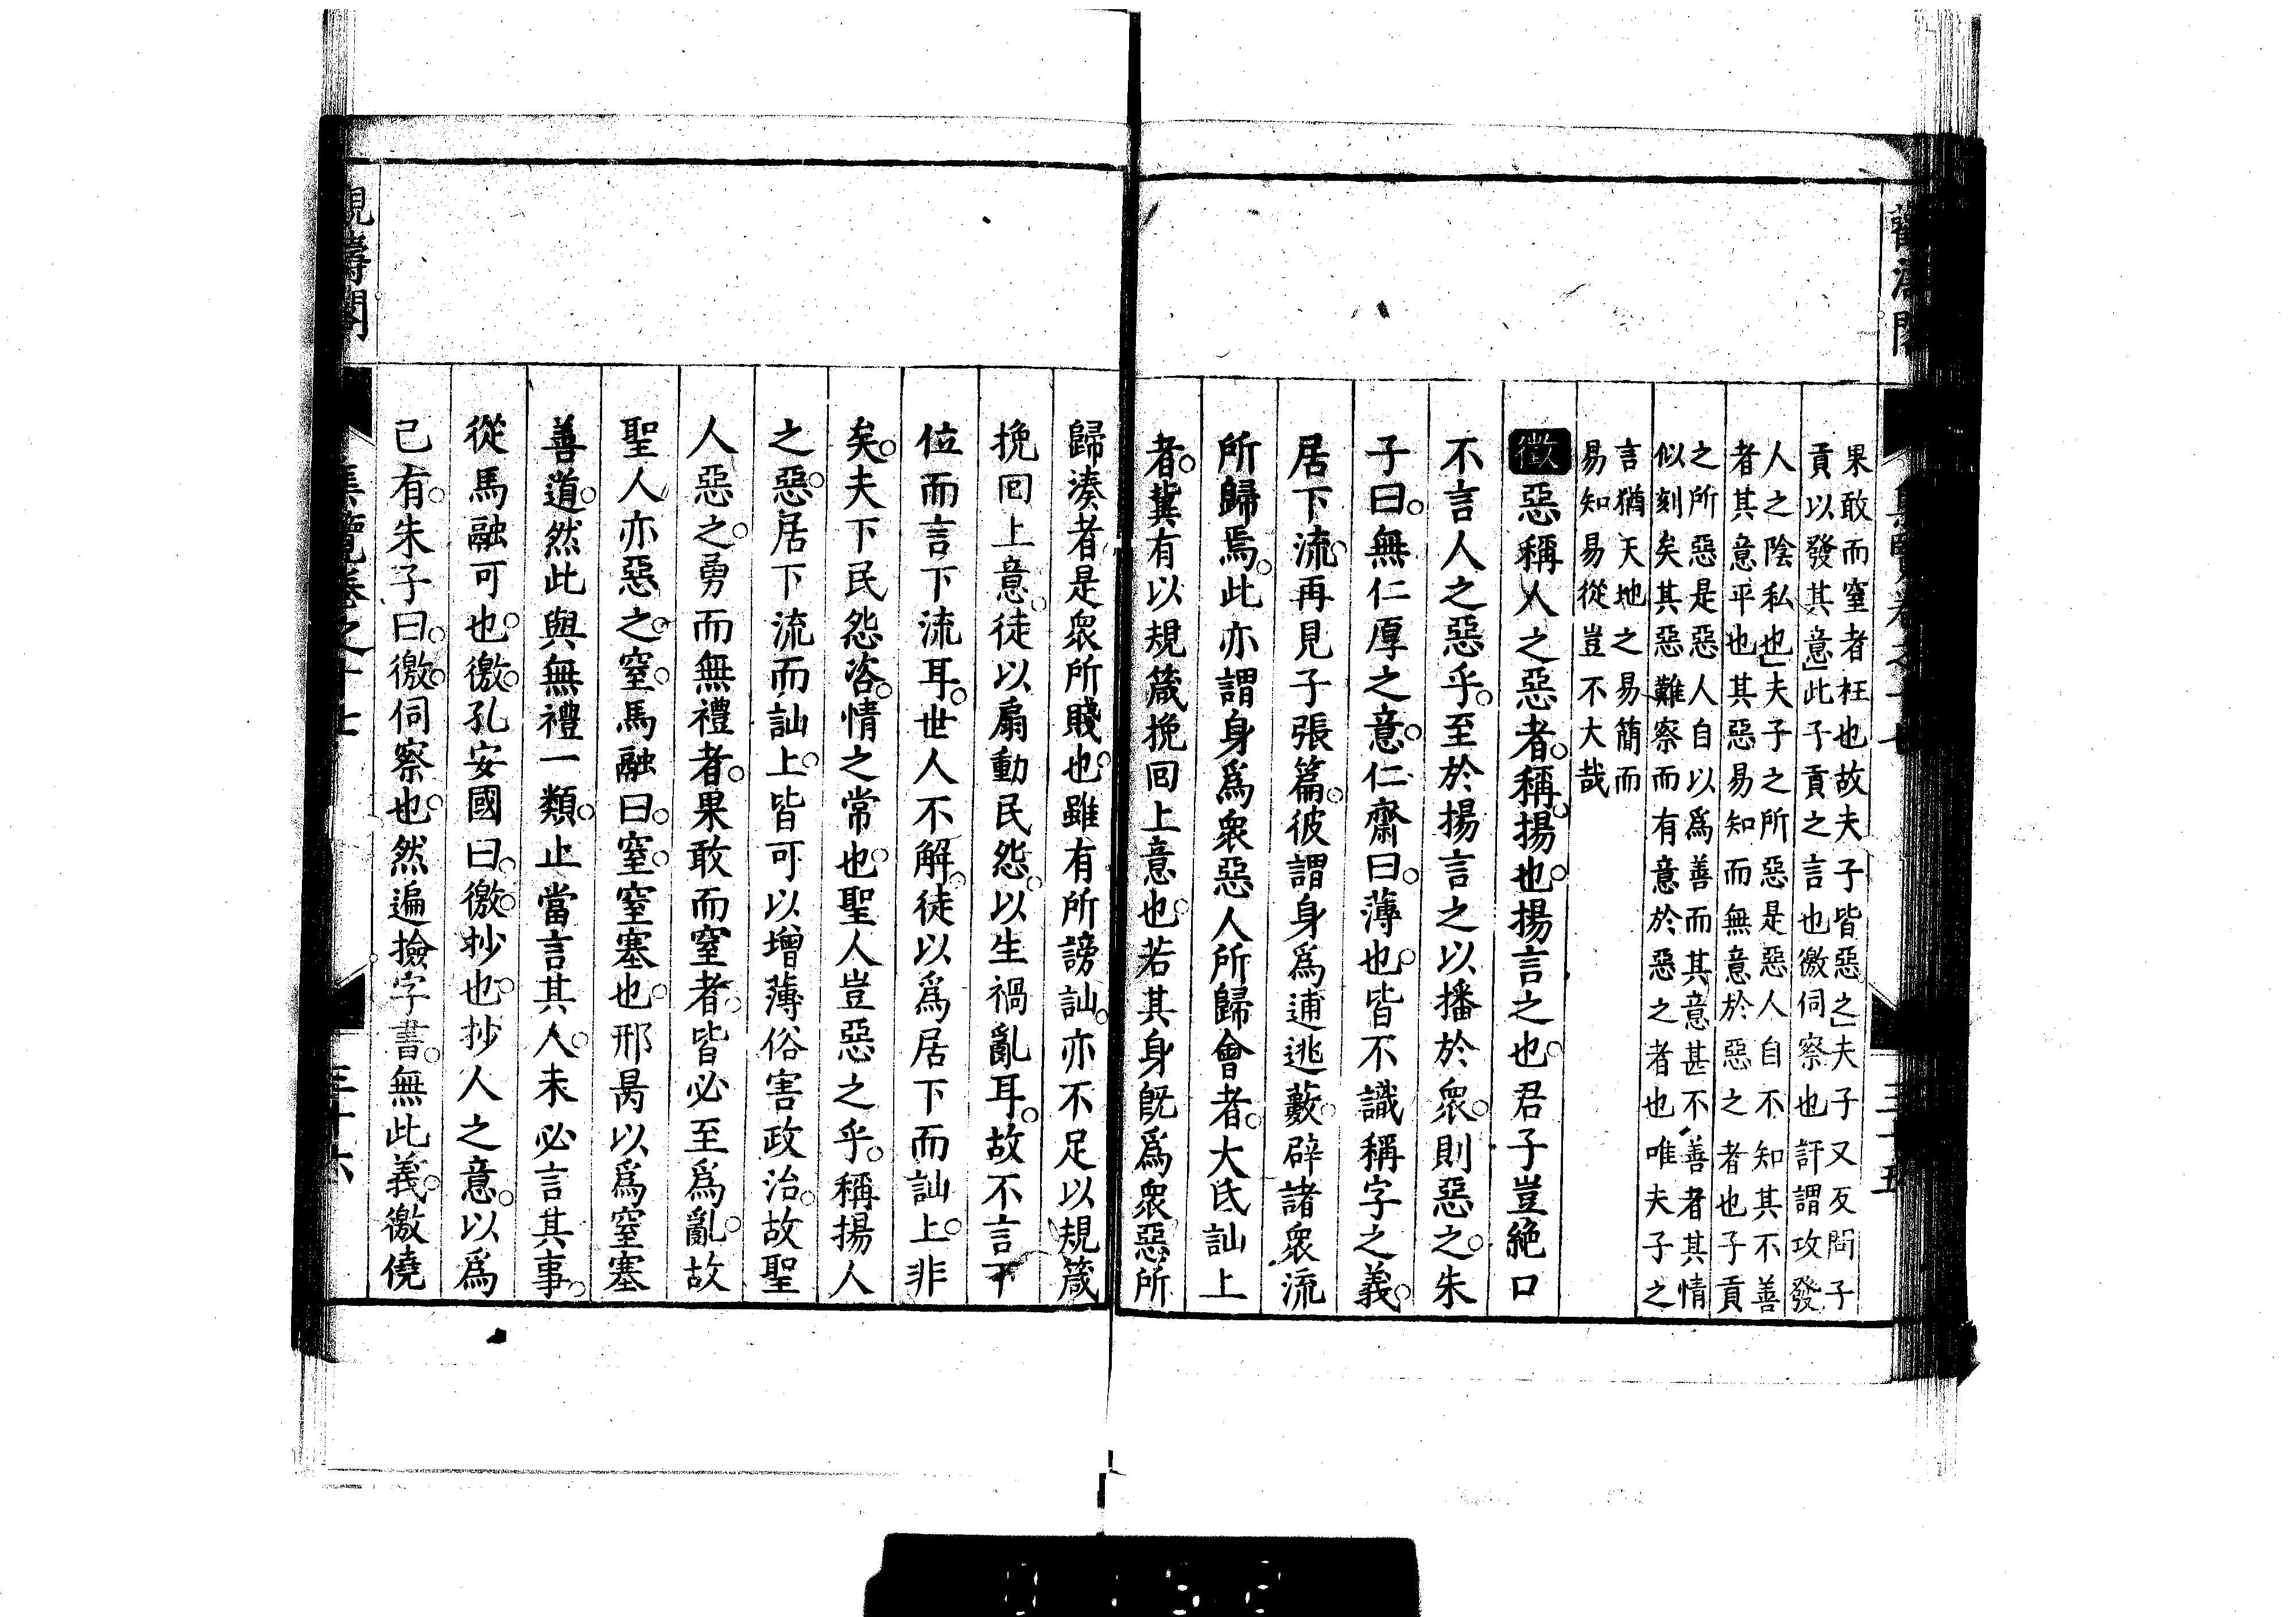 果敢而窒者枉也故夫子皆惡之夫子又反問子
貢以發其意此子貢之言也徼伺察也訐謂攻發
人之陰私也夫子之所惡是惡人自不知其不善
者其意平也其惡易知而無意於惡之者也子貢
之所惡是惡人自以爲善而其意甚不善者其情
似刻矣其惡難察而有意於惡之者也唯夫子之
言猶天地之易簡而
易知易從豈不大哉
徵惡稱人之惡者。稱。揚也。揚言之也。君子豈絶口
不言人之惡乎。至於揚言之以播於衆。則惡之。朱
子曰。無仁厚之意。仁齋曰。薄也。皆不識稱字之義。
居下流。再見子張篇。彼謂身爲逋逃藪。辟諸衆流
所歸焉。此亦謂身爲衆惡人所歸會者。大氏訕上
者。冀有以規箴挽回上意也。若其身既爲衆惡所
歸湊者。是衆所賤也。雖有所謗訕。亦不足以規箴
挽回上意。徒以扇動民怨。以生禍亂耳。故不言下
位而言下流耳。世人不解。徒以爲居下而訕上。非
矣。夫下民怨咨。情之常也。聖人豈惡之乎。稱揚人
之惡。居下流而訕上。皆可以增薄俗害政治。故聖
人惡之。勇而無禮者。果敢而窒者。皆必至爲亂。故
聖人亦惡之。窒。馬融曰。窒。窒塞也。邢昺以爲窒塞
善道。然此與無禮一類。止當言其人。未必言其事。
從馬融可也。徼。孔安國曰。徼。抄也。抄人之意。以爲
己有。朱子曰。徼。伺察也。然遍撿字書。無此義。徼僥
集覽卷之十七
三十六